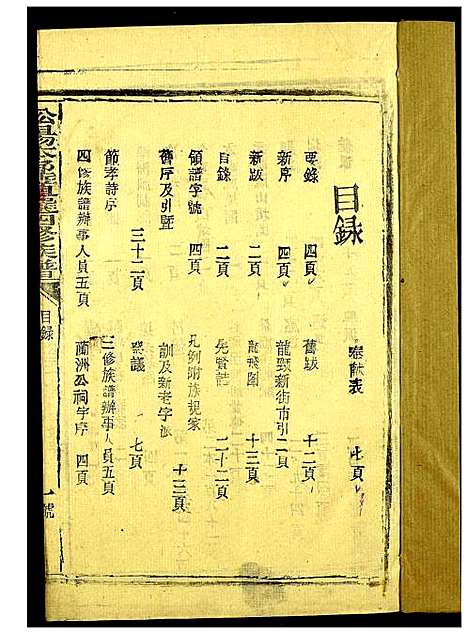 目録
捐献表 七頁
要錄 四頁
舊跋 十二頁
新序 四頁
龍頸新街市引 二頁
新跋 二頁
龍飛圖 十三頁
目錄 二頁
先賢誌 二十二頁
領譜字號 四頁
凡例附族規家訓及新老字派 十三頁
舊序及引暨 三十二頁
祭議 七頁
節孝詩序
三修族譜辦事人員 五頁
四修族譜辦事人員 五頁
蘭洲公祠字序 四頁
四修族譜
目録
一號